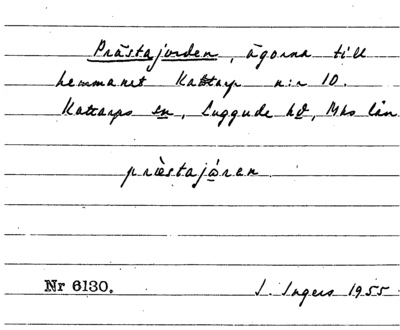 Prästajorden, ägorna till
hemmanet Kattarp n:r 10.
Kattarps sn, Luggude hd, Mhs län
prästajóren
Nr 6130.
I. Ingers 1955